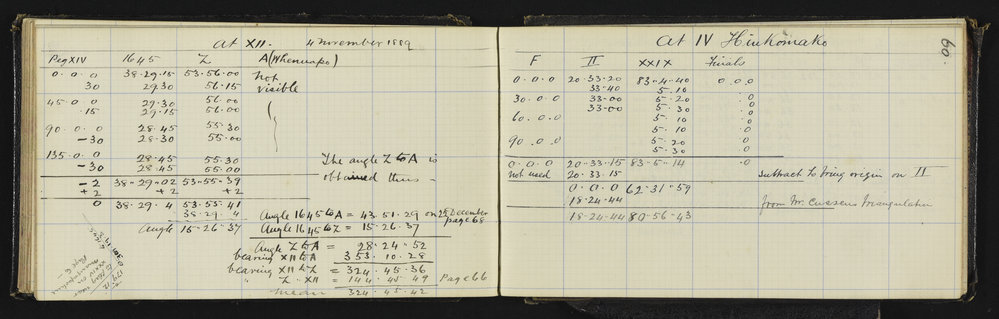 at XII. 4 November 1889
Peg XIV 1645 Z A (Whenuapo)
0.0.0 38.29.15 53.56.00 Not
30 29.30 56.15 visible
45.0.0 29.30 56.00
.15 29.15 56.00
90.0.0 28.45 55.30
-30 28.30 55.00
135.0.0 28.45 55.30 The angle Z to A is
-30 28.45 55.00 obtained thus -
-2 38-29-02 53-55-39
+2 +2 +2
0 38.29.4 53.55.41
38.29.4 Angle 1645 to A = 43.51.29 on 25 December page 68
Angle 15-26-37 Angle 1645 to Z = 15.26.37
Angle Z to A = 28-24-52
bearing XII to A 353.10.28
bearing XII to Z = 324.45.36
" Z.XII = 144.45.49 Page 66
mean 324.45.42
60.
At IV Hinkomako
F II XXIX Finals
0.0.0 20.33.20 83.4.40 0.0.0
33.40 5.10
30.0.0 33-00 5.20 .0
33-00 5.30 .0
60.0.0 5.10 .0
5.10 .0
90.0.0 5.20 .0
5.30 .0
0.0.0 20.33.15 83-5-14 .0
not used 20.33.15 Subtract to bring origin on II
0.0.0 62-31-59
18-24-44 from Mr. Cussens triangulation
18-24-44 80-56-43